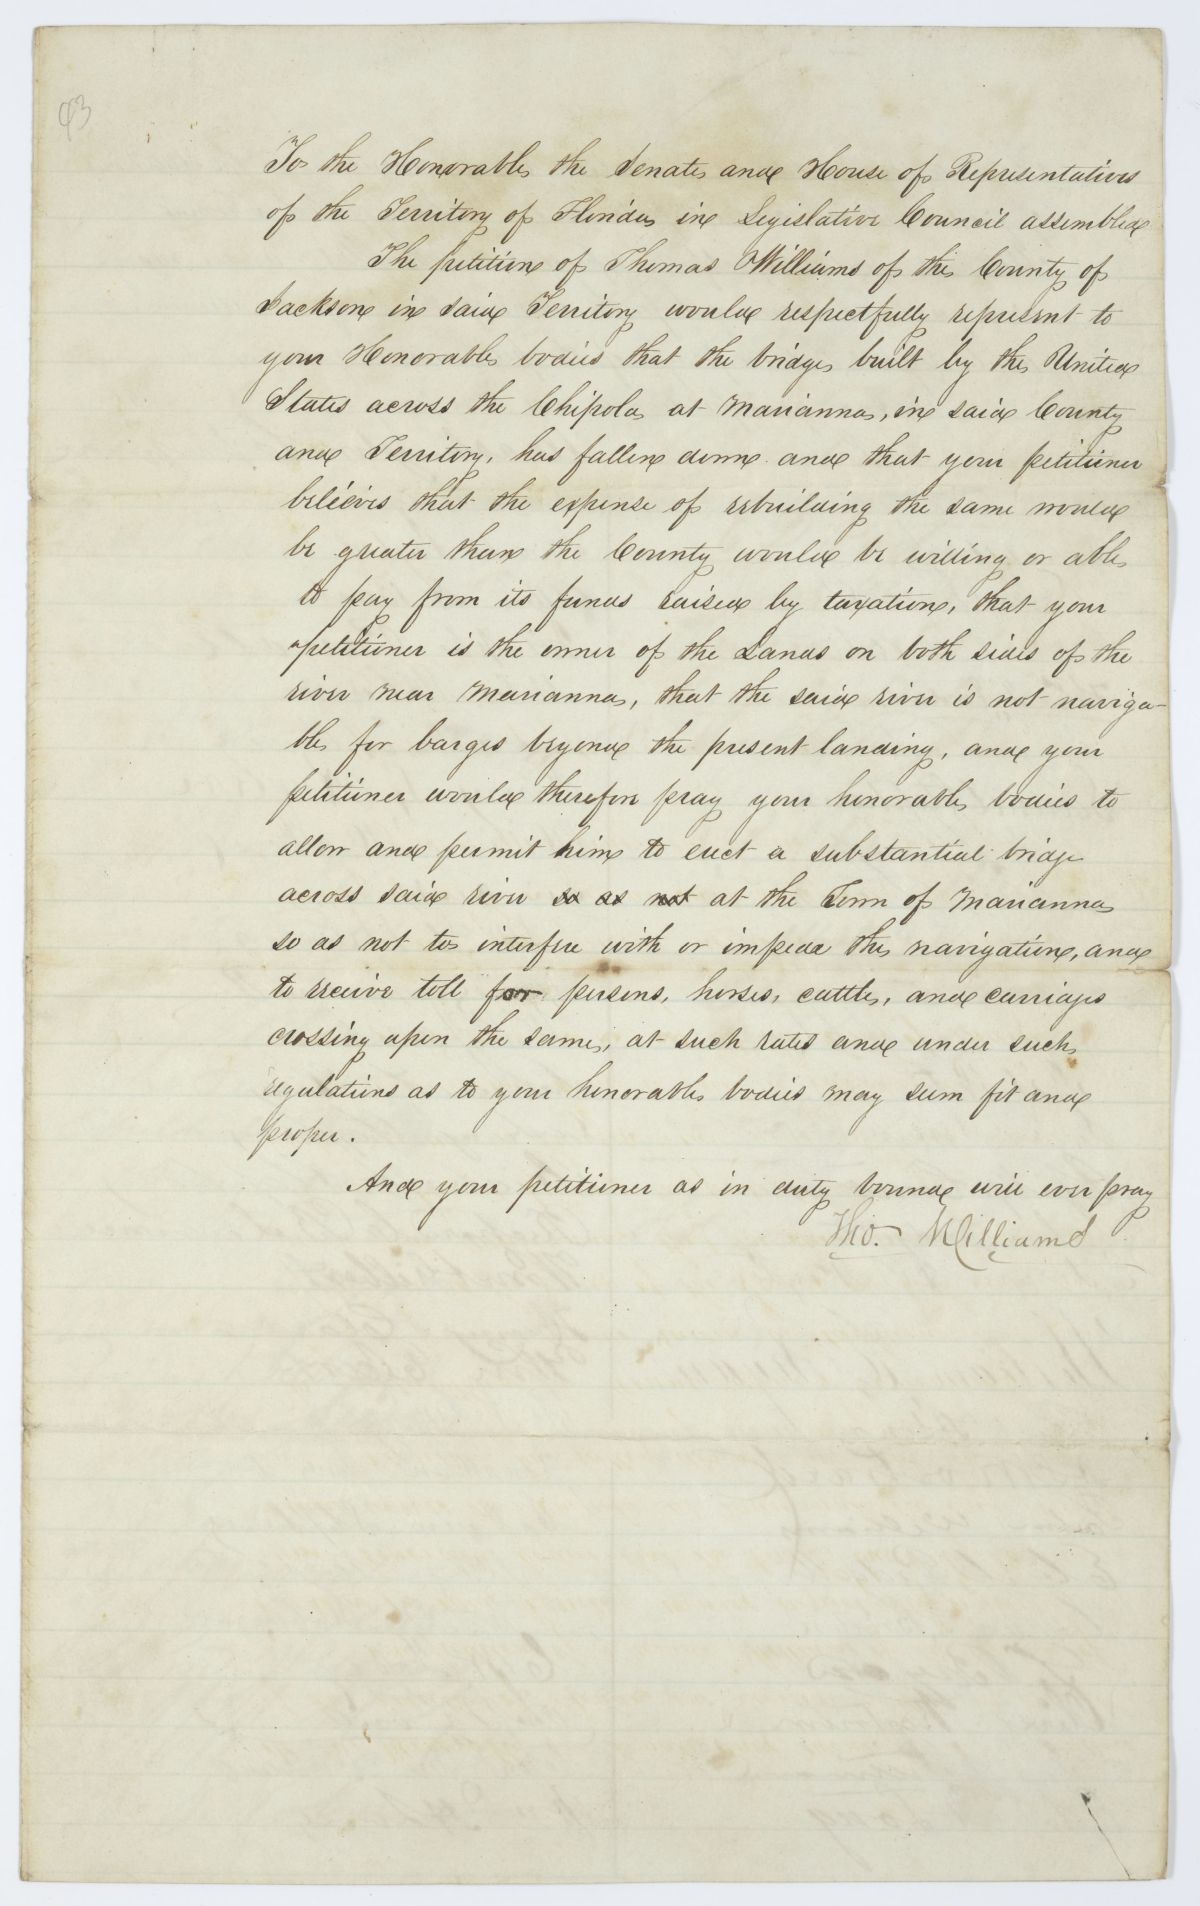 93
To the Honorable the Senate and House of Representatives
of the Territory of Florida in Legislative Council assembled
The petition of Thomas Williams of the County of
Jackson in said Territory would respectfully represent to
your Honorable bodies that the bridge built by the United
States across the Chipola at Marianna, in said County
and Territory, has fallen down and that your petitioner
believes that the expense of rebuilding the same would
be greater than the County would be willing or able
to pay from its funds raised by taxation, that your
petitioner is the owner of the Lands on both sides of the
river near Marianna, that the said river is not naviga-
ble for barges beyond the present landing, and your
petitioner would therefore pray your honorable bodies to
allow and permit him to erect a substantial bridge
across said river so as not at the Town of Marianna
so as not to interfere with or impede the navigation, and
to receive toll for persons, horses, cattle, and carriages
crossing upon the same, at such rates and under such
regulations as to your honorable bodies may seem fit and
proper.
And your petitioner as in duty bound will ever pray
Tho. Williams